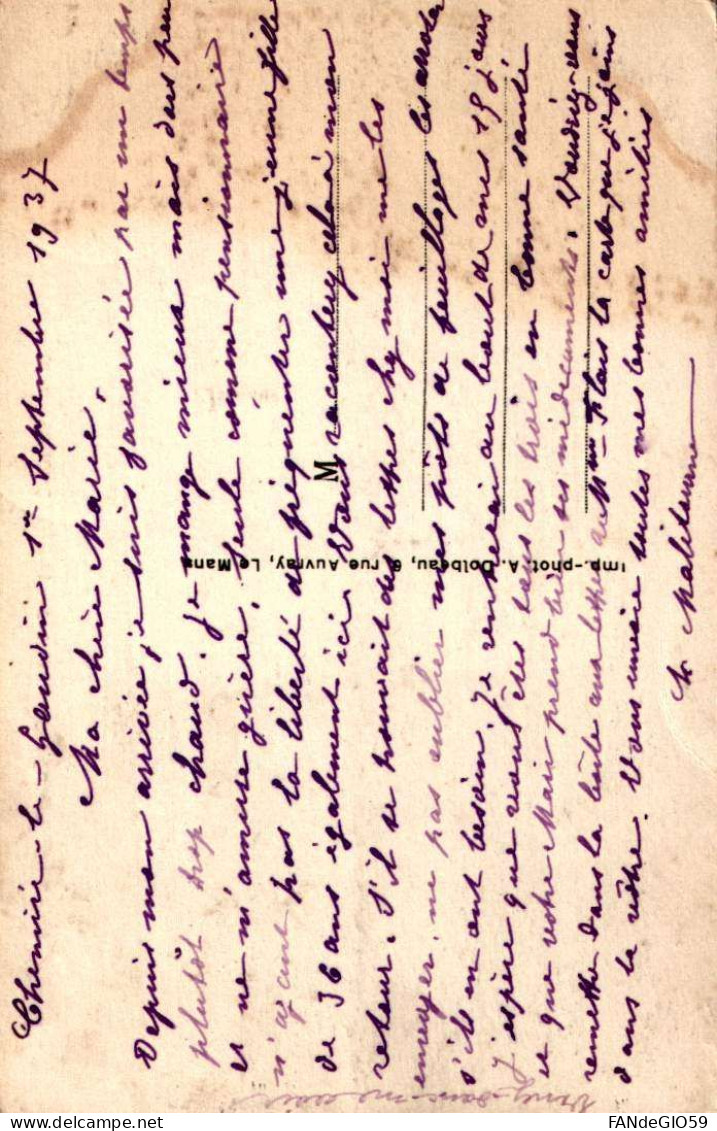 Chemiré-le-Gaudin 1er Septembre 1937
Ma chère Marie,
Depuis mon arrivée, je suis favorisée par un temps
plutôt trop chaud, je mange mieux mais dors peu
et ne m'amuse guère. Seule comme pensionnaire
n'ayant pas la liberté de fréquenter une jeune fille
de 36 ans également ici. Vous raconterez cela à mon
retour. S'il se trouvait des lettres chez moi me les
envoyer, ne pas oublier mes pots de feuillages les
s'ils en ont besoin. Je rentrerai au bout de mes 19 jours
j'espère que vous êtes tous les trois en bonne santé
et que votre Mari prend bien ses médicaments. Voudriez-vous
remettre dans la boîte aux lettres de Mme la carte que je joins
dans la vôtre. Vous envoie toutes mes bonnes amitiés
M
Imp.-phot. A. Dolbeau, 6, rue Auvray, Le Mans
delcampe.net
FANdeGIO59